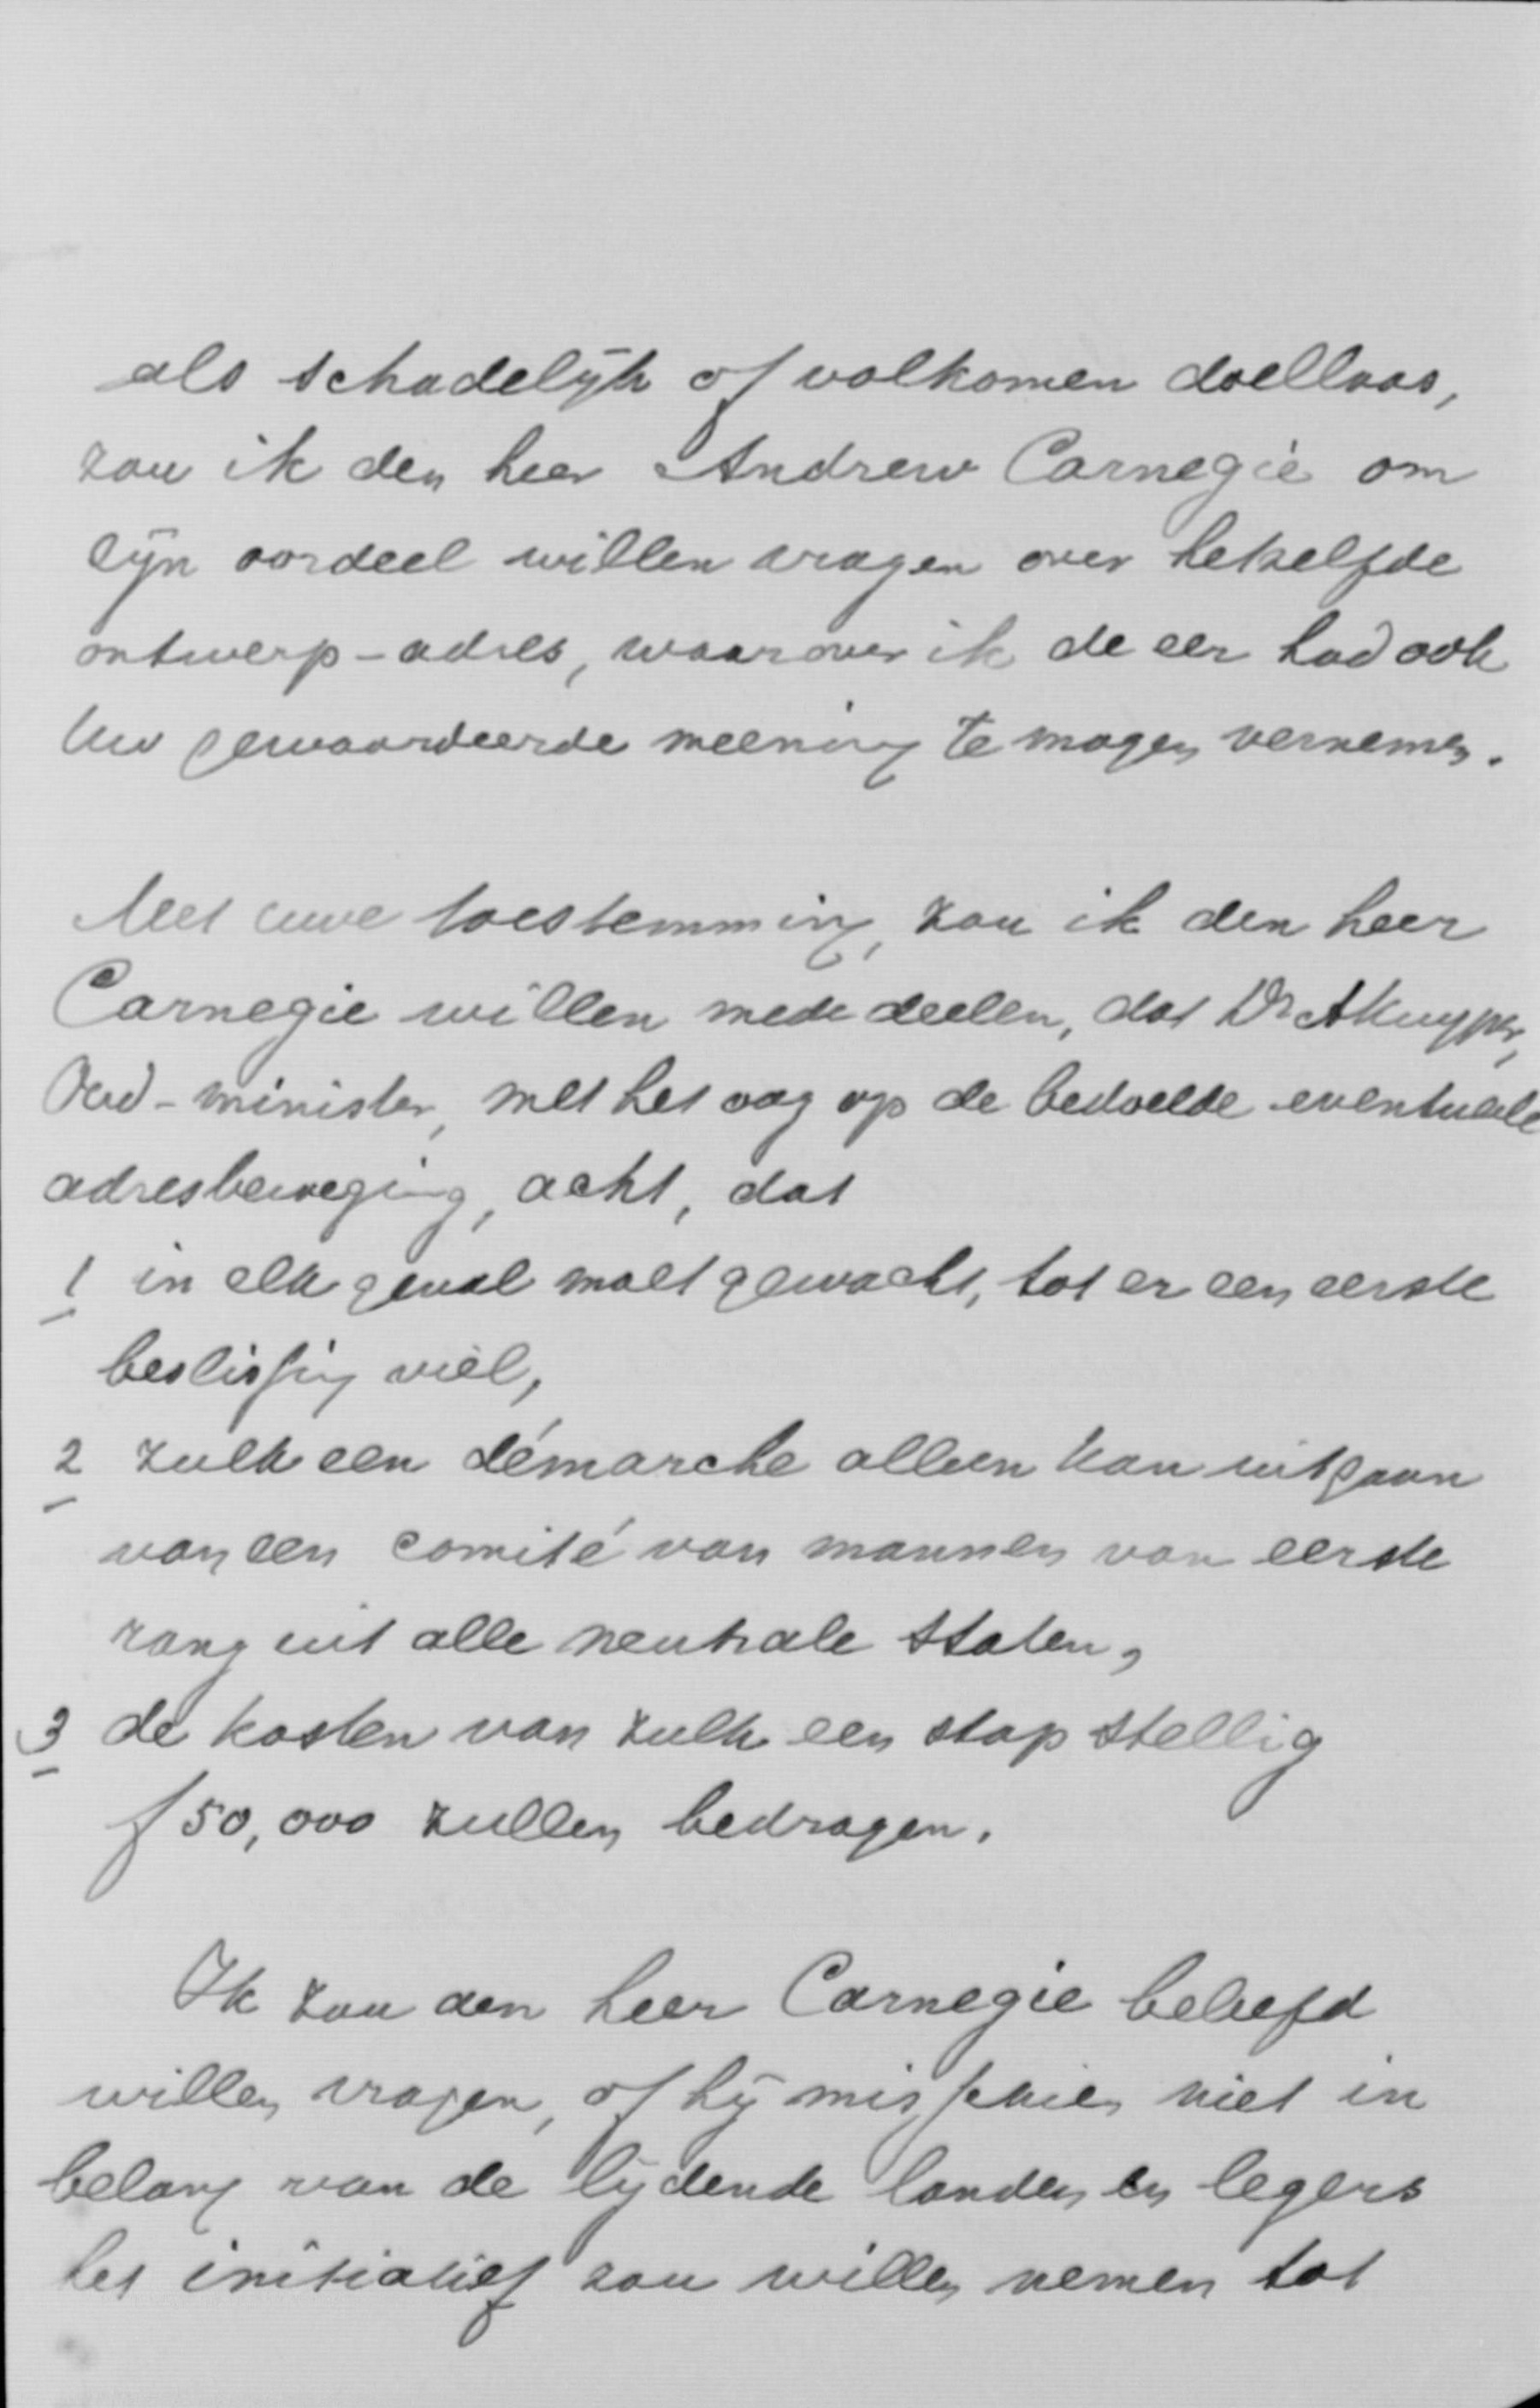 als schadelijk of volkomen doelloos,
zou ik den heer Andrew Carnegie om
zijn oordeel willen vragen over hetzelfde
ontwerp-adres, waarover ik de eer had ook
Uw gewaardeerde meening te mogen vernemen.
Met uwe toestemming, zou ik den heer
Carnegie willen mededeelen, dat Dr A Kuyper,
Oud-minister, met het oog op de bedoelde eventueele
adresbeweging, acht, dat
1 in elk geval moet gewacht, tot er een eerste
beslissing viel,
2 zulk een démarche alleen kan uitgaan
van een comité van mannen van eerste
rang uit alle neutrale staten,
3 de kosten van zulk een stap stellig
f 50,000 zullen bedragen.
Ik zou den heer Carnegie beleefd
willen vragen, of hij misschien niet in
belang van de lijdende landen en legers
het initiatief zou willen nemen tot